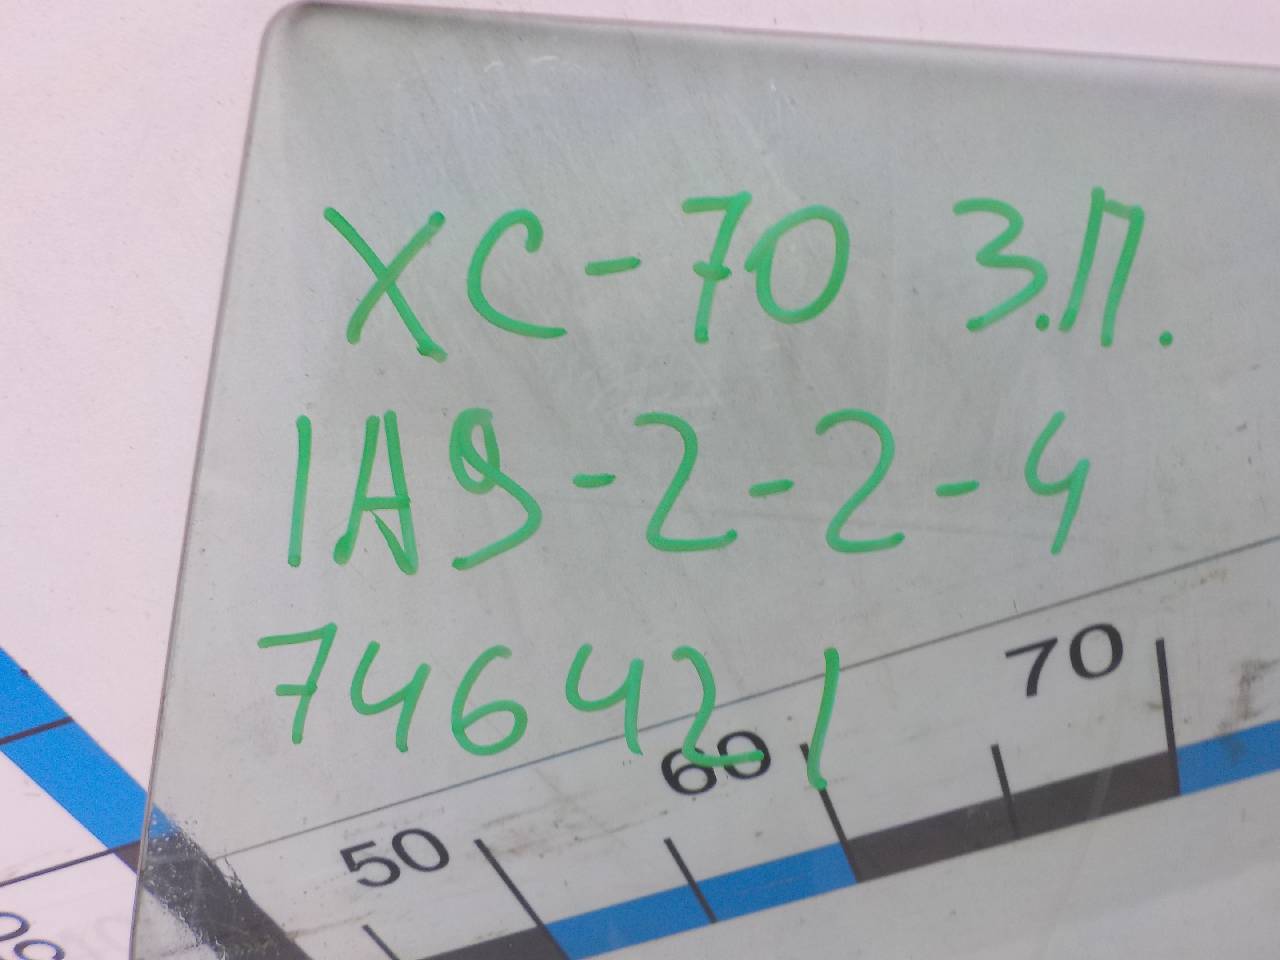 ХС-70 З.П.
1А9-2-2-4
746421
70
60
50